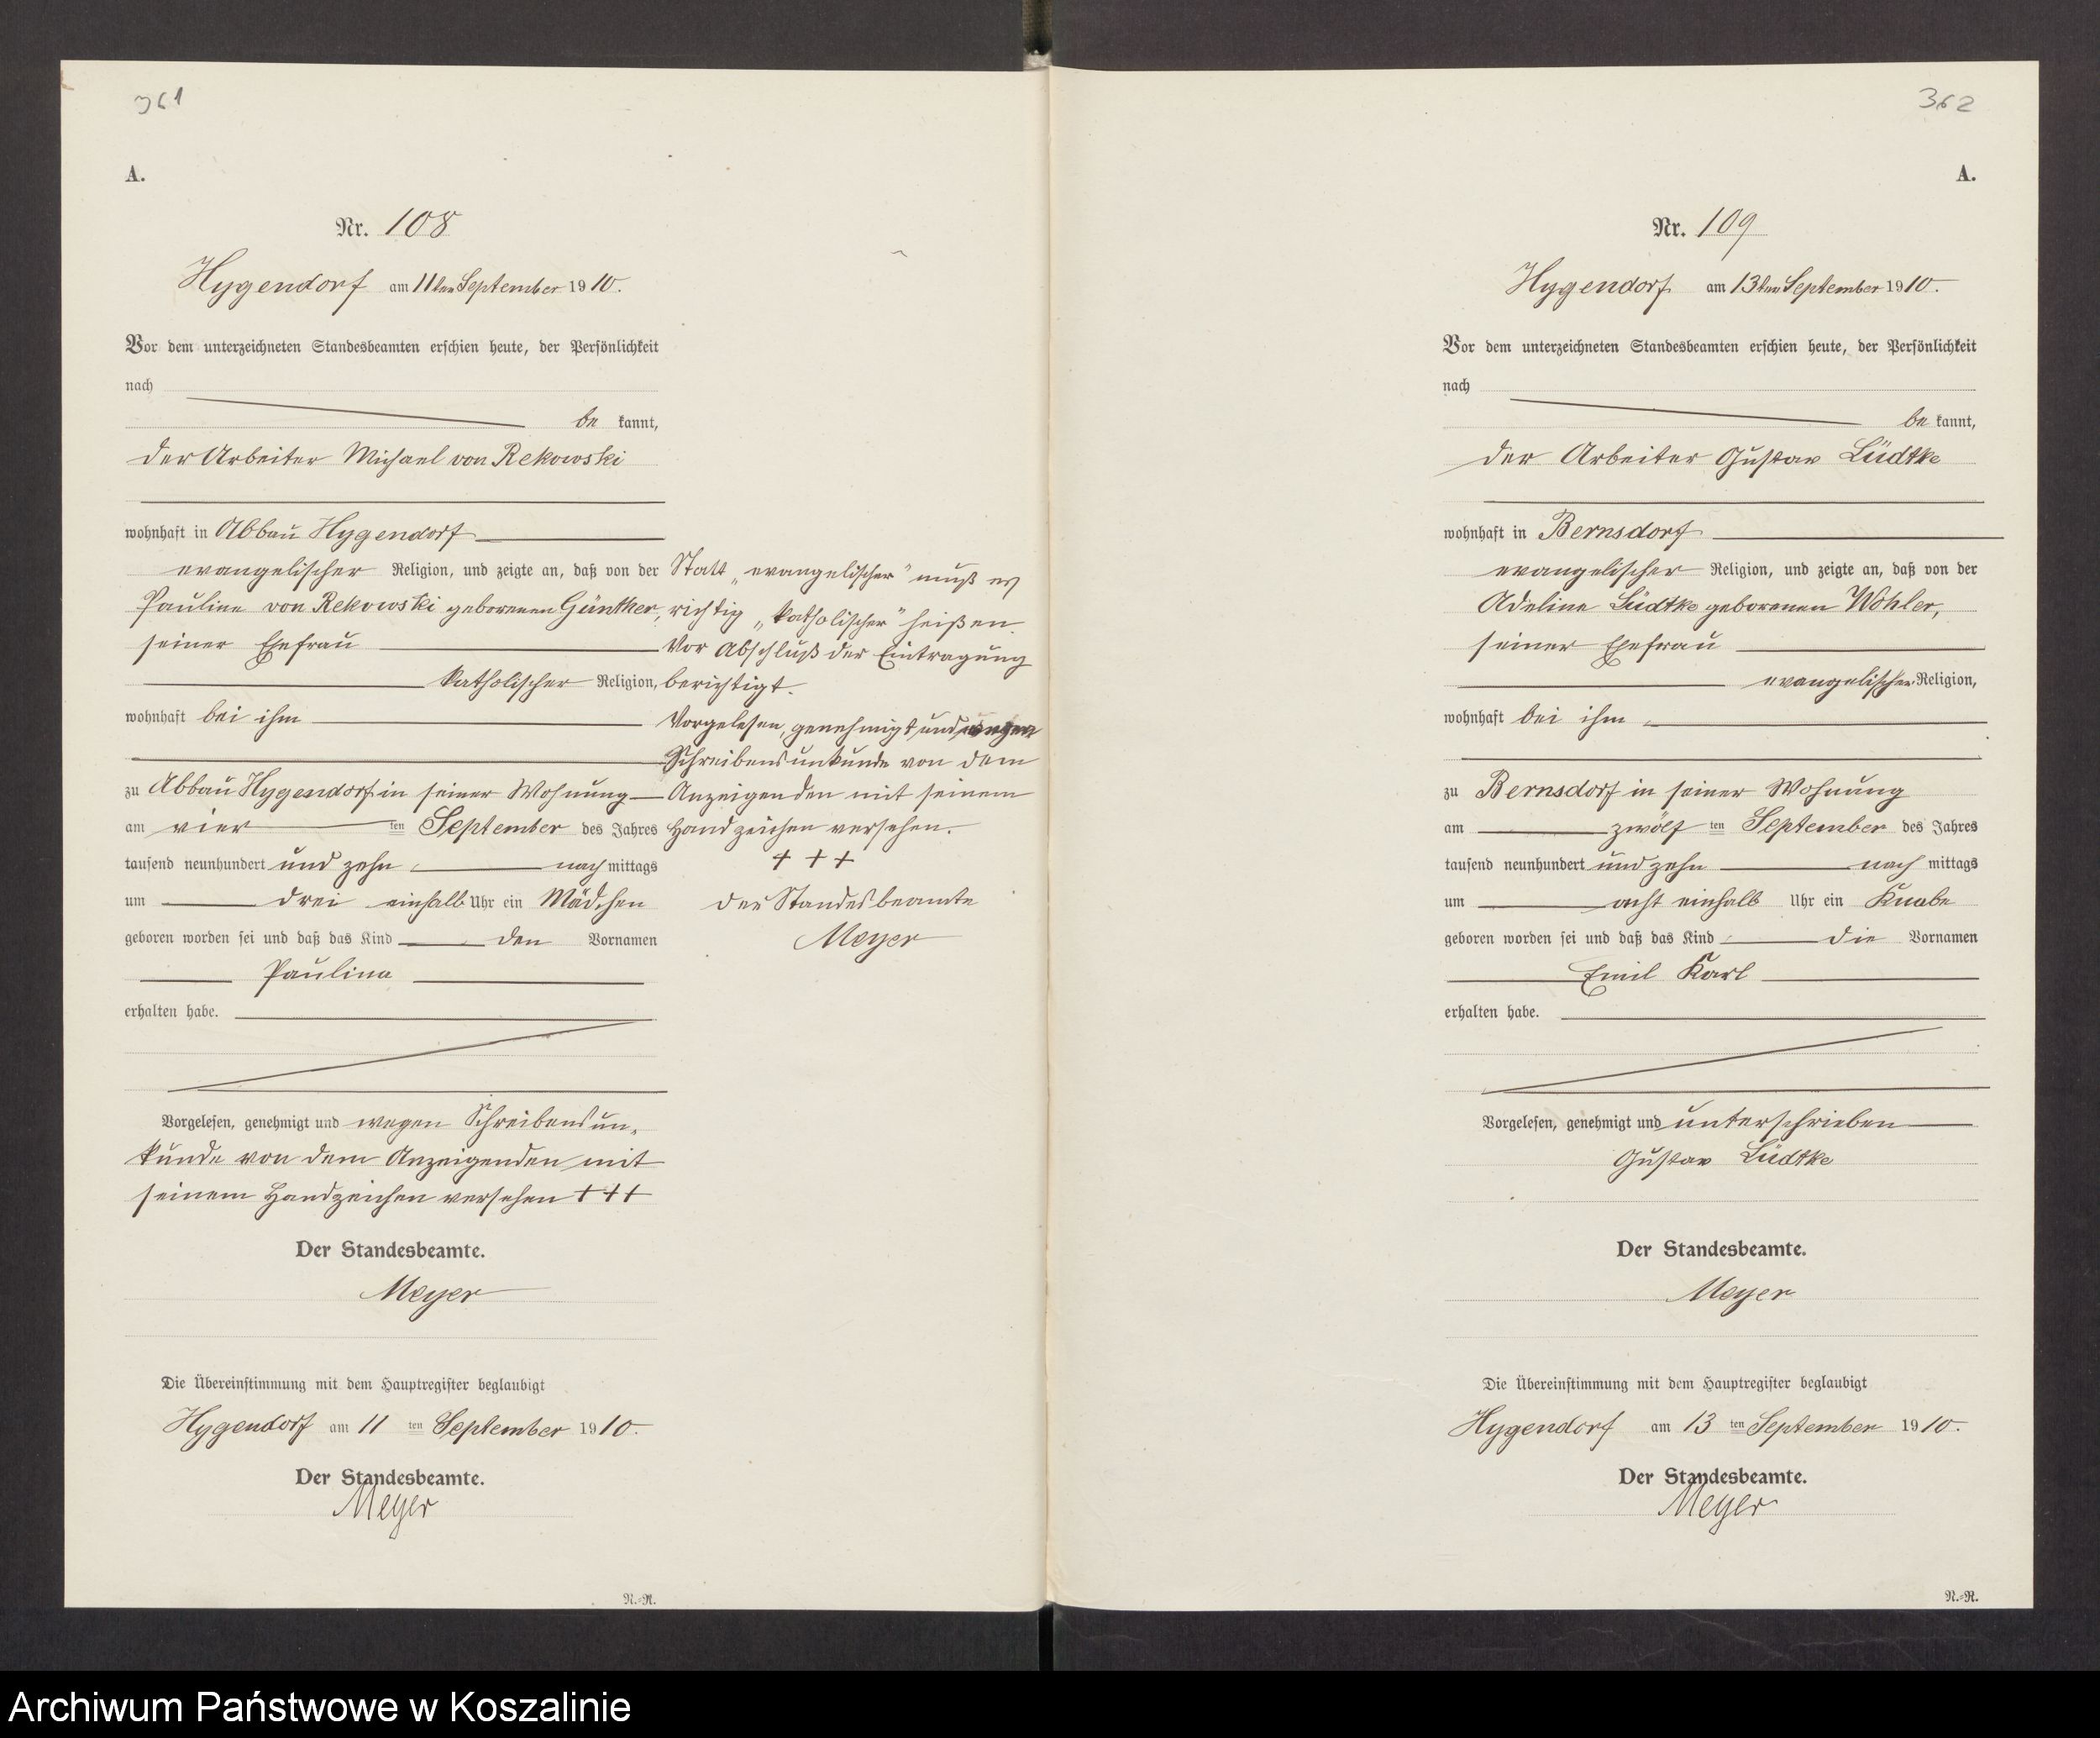 361
A.
Nr. 108
Hygendorf am 11ten September 1910.
Vor dem unterzeichneten Standesbeamten erschien heute, der Persönlichkeit
nach
be kannt,
der Arbeiter Michael von Rekowski
wohnhaft in Abbau Hygendorf
evangelischer Religion, und zeigte an, daß von der
Pauline von Rekowski geborenen Günther,
seiner Ehefrau
katholischer Religion,
wohnhaft bei ihm
zu Abbau Hygendorf in seiner Wohnung
am vier ten September des Jahres
tausend neunhundert und zehn nach mittags
um drei einhalb Uhr ein Mädchen
geboren worden sei und daß das Kind den Vornamen
Paulina
erhalten habe.
Vorgelesen, genehmigt und wegen Schreibensun-
kunde von dem Anzeigenden mit
seinem Handzeichen versehen +++
Der Standesbeamte.
Meyer
Die Übereinstimmung mit dem Hauptregister beglaubigt
Hygendorf am 11 ten September 1910.
Der Standesbeamte.
Meyer
N.-R.
Statt „evangelischer" muß es
richtig „katholischer" heißen.
Vor Abschluß der Eintragung
berichtigt.
Vorgelesen, genehmigt und wegen
Schreibensunkunde von dem
Anzeigenden mit seinem
Handzeichen versehen.
+ + +
Der Standesbeamte
Meyer
362
A.
Nr. 109
Hygendorf am 13ten September 1910.
Vor dem unterzeichneten Standesbeamten erschien heute, der Persönlichkeit
nach
be kannt,
der Arbeiter Gustav Lüdtke
wohnhaft in Bernsdorf
evangelischer Religion, und zeigte an, daß von der
Adeline Lüdtke geborenen Wöhler,
seiner Ehefrau
evangelischer Religion,
wohnhaft bei ihm
zu Bernsdorf in seiner Wohnung
am zwölf ten September des Jahres
tausend neunhundert und zehn nach mittags
um acht einhalb Uhr ein Knabe
geboren worden sei und daß das Kind die Vornamen
Emil Karl
erhalten habe.
Vorgelesen, genehmigt und unterschrieben
Gustav Lüdtke
Der Standesbeamte.
Meyer
Die Übereinstimmung mit dem Hauptregister beglaubigt
Hygendorf am 13 ten September 1910.
Der Standesbeamte.
Meyer
N.-R.
Archiwum Państwowe w Koszalinie